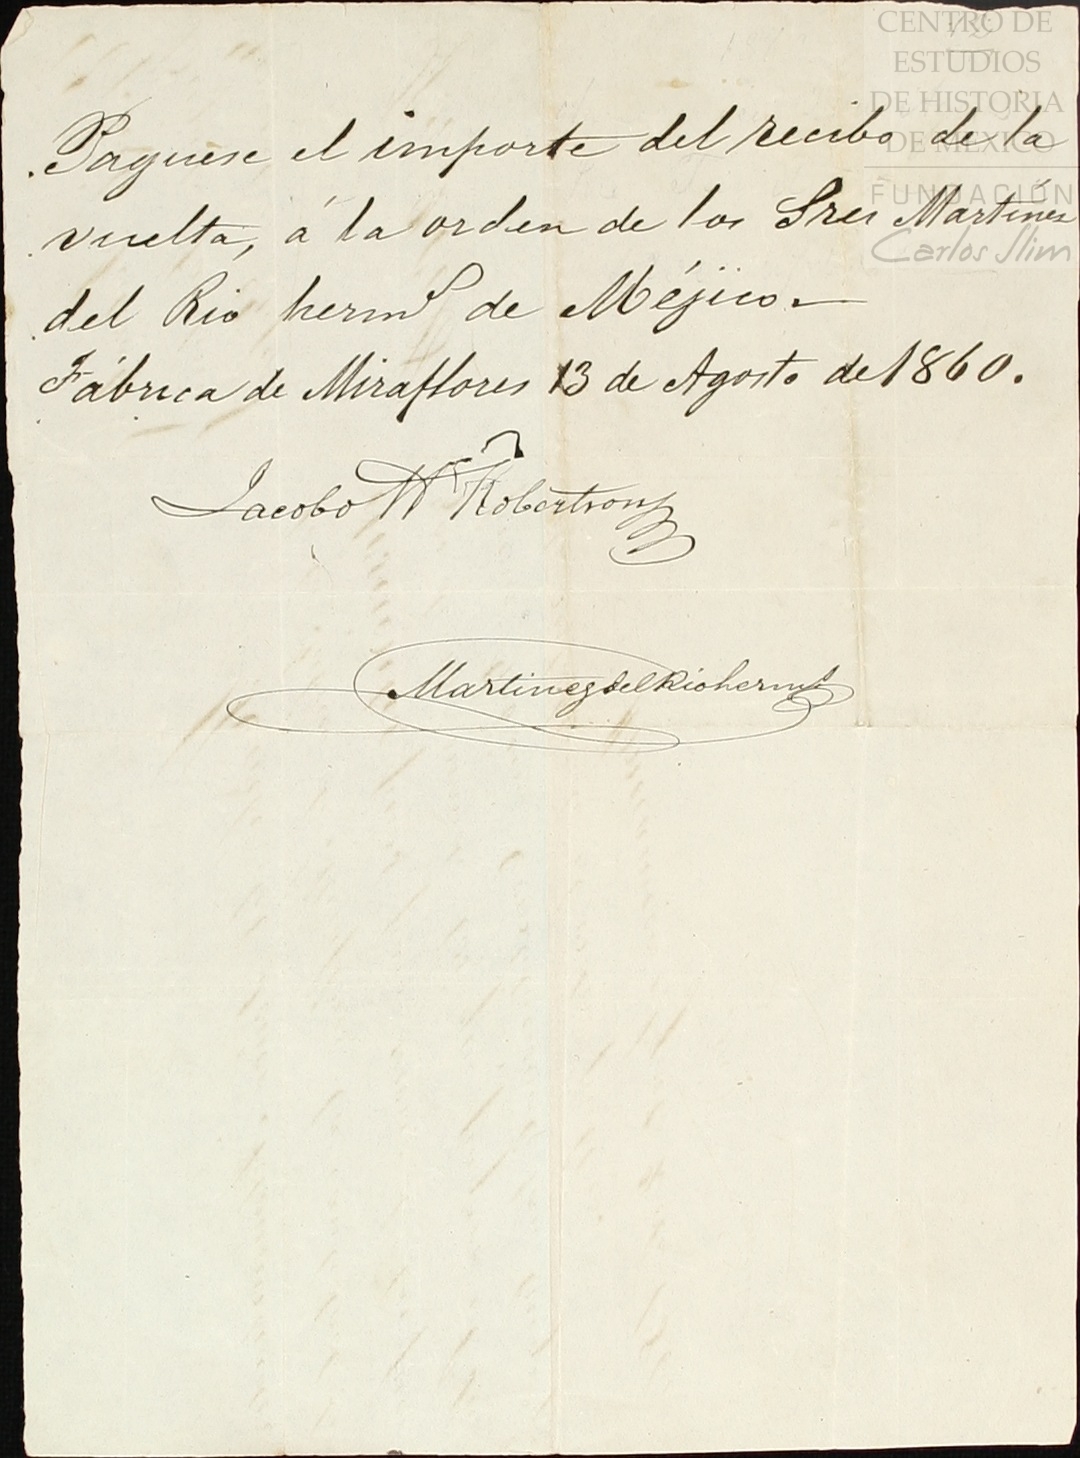 CENTRO DE
ESTUDIOS
DE HISTORIA
DE MÉXICO
FUNDACIÓN
Carlos Slim
Paguese el importe del recibo de la
vuelta, á la orden de los Sres Martines
del Rio herms de Méjico.—
Fábrica de Miraflores 13 de Agosto de 1860.
Jacobo W Robertson
Martinez del Rio herms